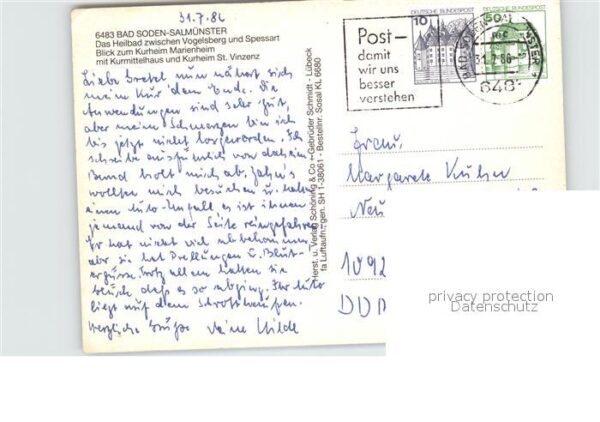 31.7.86
6483 BAD SODEN-SALMÜNSTER
Das Heilbad zwischen Vogelsberg und Spessart
Blick zum Kurheim Marienheim
mit Kurmittelhaus und Kurheim St. Vinzenz
Liebe Gretel nun nähert sich
mein Kur dem Ende. Die
Anwendungen sind sehr gut,
aber meine Schmerzen bin ich
bis jetzt nicht losgeworden. Ich
schreibe ausführlich von daheim.
holt mich ab.
wollten mich besuchen u. hatten
einen Auto-Unfall es ist ihnen
jemand von der Seite reingefahren
Er hat nicht viel abbekommen
aber sie hat Prellungen u. Blut-
ergüsse. Trotz allem hatten sie
daß es so abging. Ihr Auto
liegt auf dem Schrotthaufen.
Herzliche Grüße Deine Hilde
Herst. u. Verlag Schöning & Co + Gebrüder Schmidt · Lübeck
fa Luftaufn. gen. SH 1-38061 · Bestellnr. Sosal KL 6680
DEUTSCHE BUNDESPOST
10
DEUTSCHE BUNDESPOST
50
Post–
damit
wir uns
besser
verstehen
BAD SODEN-SALMÜNSTER
31.7.86
6483
Frau,
Margarete Kuhn
Neu
1092
DDR
privacy protection
Datenschutz